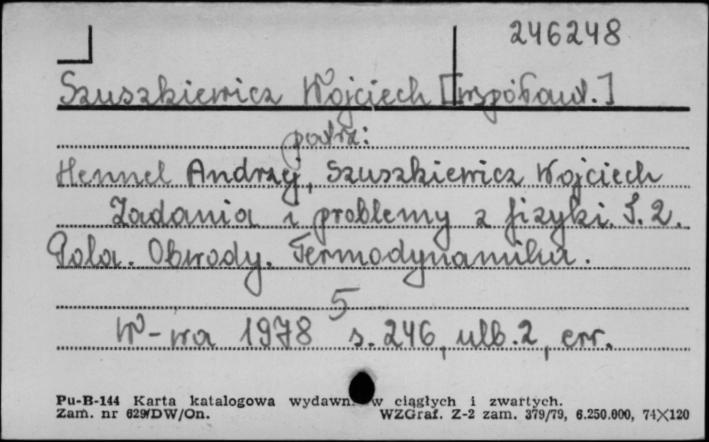 246248
Szuszkiewicz Wojciech [współaut.]
patrz:
Hennel Andrzej, Szuszkiewicz Wojciech
Zadania i problemy z fizyki. T. 2.
Pola. Obwody. Termodynamika.
5
W-wa 1978 s. 246, ulb. 2, err.
Pu-B-144 Karta katalogowa wydawn. w ciągłych i zwartych.
Zam. nr 629/DW/On. WZGraf. Z-2 zam. 379/79, 6.250.000, 74X120